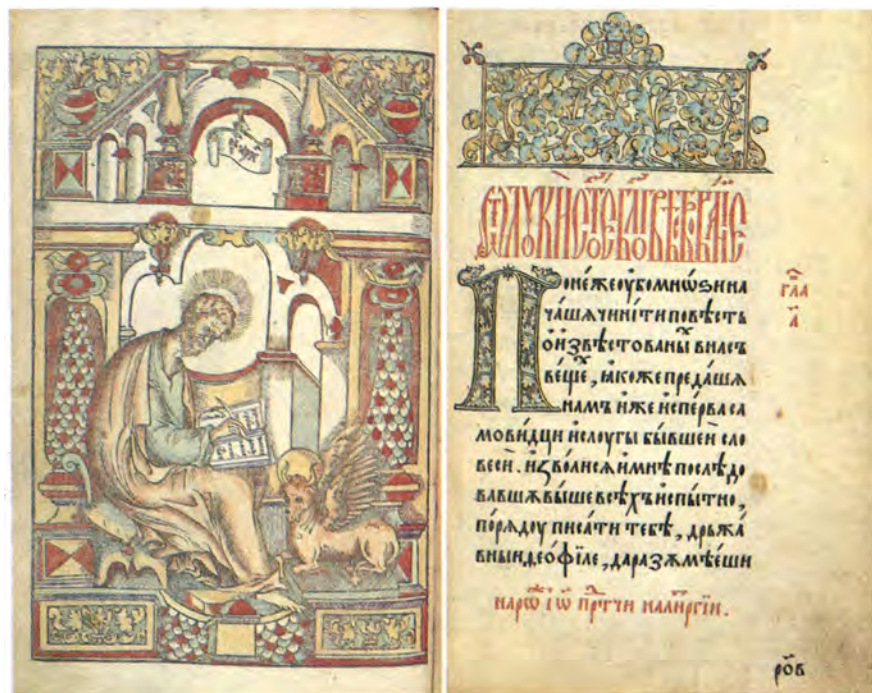 ѿ лꙋки ст҃ое бл҃говѣствованїе
Поне́же ᲂу҆́бо мно́ѕи на
ча́шѧ чини́ти по́вѣсть
о҆ и҆звѣстованы́хъ в нас̾
ве́щехъ, ꙗ҆́коже преда́шѧ
на́мъ и҆́же и҆спе́рва са
мови́дци и҆ слоугы бы́вшеи сло
весѝ. и҆зво́лисѧ и҆ мнѣ̀ послѣ́до
ва́вшꙋ вы́ше всѣ́хъ и҆спы́тно,
по́рѧдоу писа́ти тебѣ̀, дрьжа́
вныи де́о́фїле, да разꙋмѣ́еши
гла
а҃
ро҃в